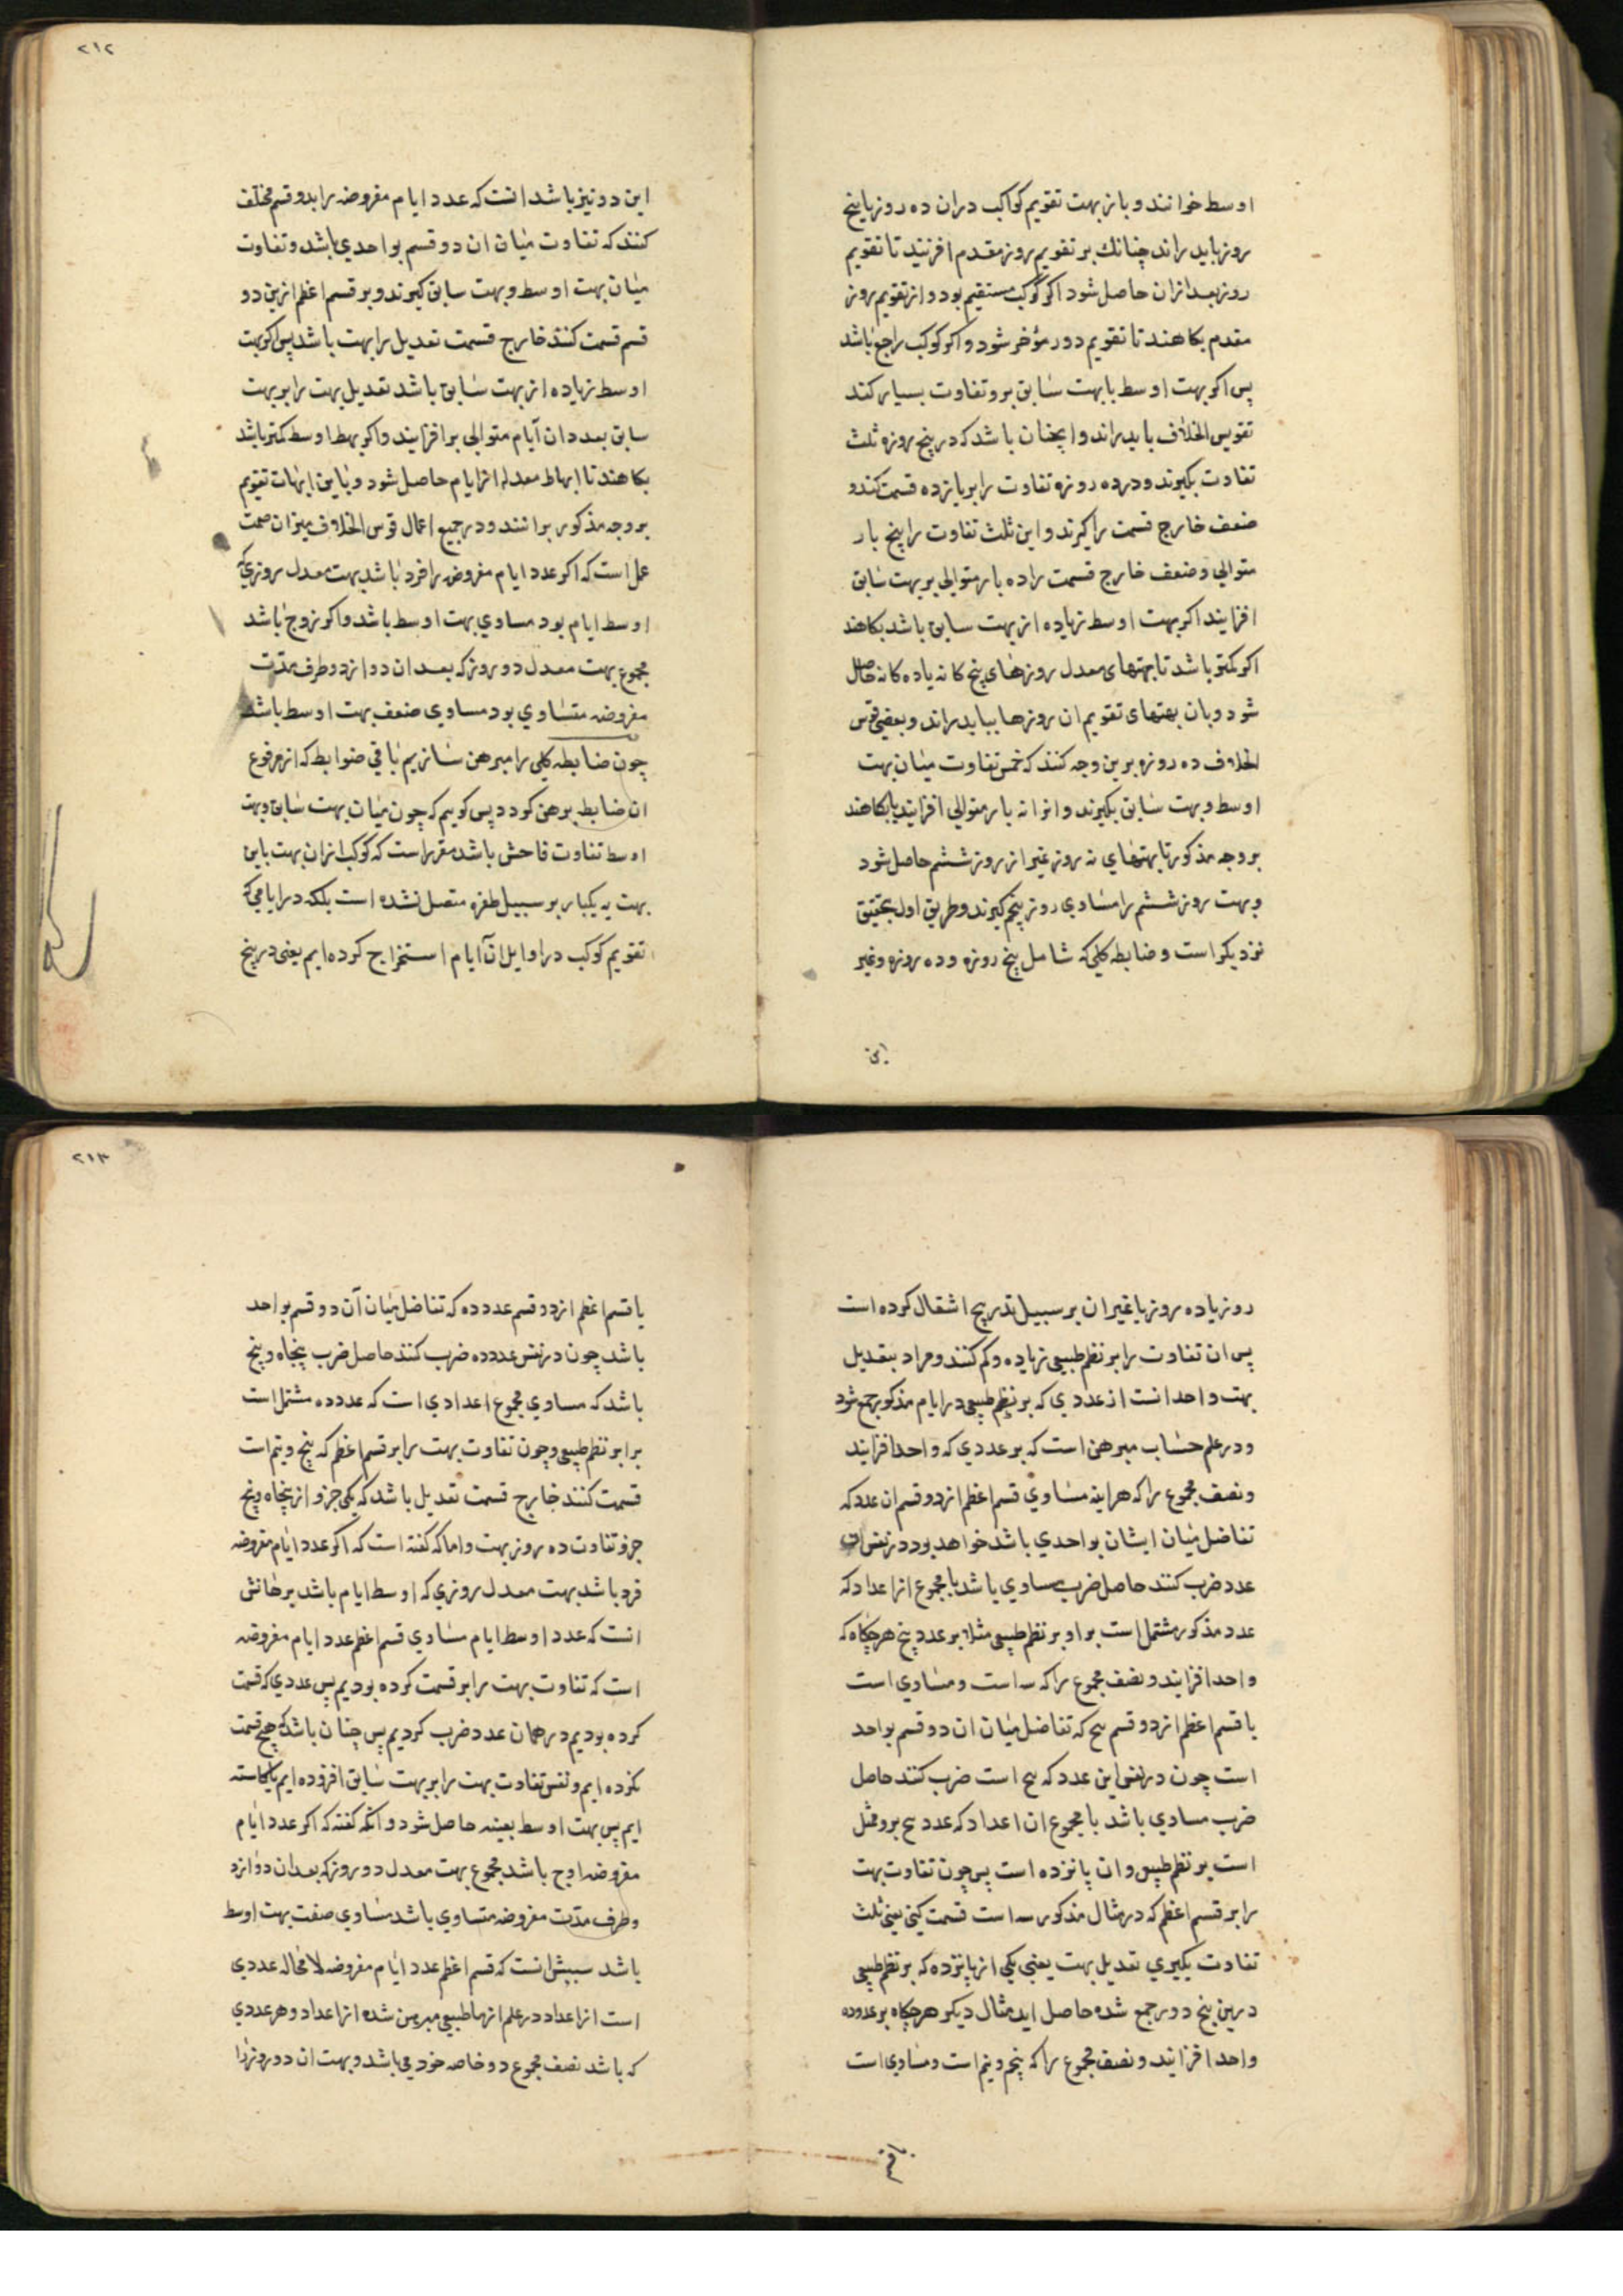 اوسط خوانند و باز بهت تقویم کواکب دران ده روز یا پنج
روز باید راند چنانك بر تقویم روز مقدم افزنید تا تقویم
روز بعد ازان حاصل شود اکر کوکب مستقیم بود و از تقویم روز
مقدم بکاهند تا تقویم دور مؤخر شود و اکر کوکب راجع باشد
پس اکر بهت اوسط با بهت سابق برو تفاوت بسیار کند
تقویس الخلاف باید راند و ایچنان باشد که در پنج روزه ثلث
تفاوت بکیرند و در ده روزه تفاوت را بر یازده قسمت کند و
ضعف خارج قسمت را کیرند و این ثلث تفاوت را پنج بار
متوالی و ضعف خارج قسمت را ده بار متوالی بر بهت سابق
افزایند اکر بهت اوسط زیاده از بهت سابق باشد بکاهند
اکر کمتر باشد تا بهتهای معدل روزهای پنج کانه یا ده کانه حاصل
شود و بان بهتهای تقویم ان روزها بباید راند و بعضی قوس
الخلاف ده روزه برین وجه کنند که خمس تفاوت میان بهت
اوسط و بهت سابق بکیرند و انرا نه بار متوالی افزایند یا بکاهند
بر وجه مذکور تا بهتهای نه روز غیر از روز ششم حاصل شود
و بهت روز ششم را مساوی روز پنجم کیرند و طریق اول بتحقیق
نزدیکتر است و ضابطه کلی که شامل پنج روزه و ده روزه و غیر
این
٢١٢
این دو نیز باشد انست که عدد ایام مفروضه را بدو قسم مختلف
کنند که تفاوت میان ان دو قسم بواحدی باشد و تفاوت
میان بهت اوسط و بهت سابق کیرند و بر قسم اعظم ازین دو
قسم قسمت کنند خارج قسمت تعدیل را بهت باشد پس اکر بهت
اوسط زیاده از بهت سابق باشد تعدیل بهت را بر بهت
سابق بعدد ان آیام متوالی بر افزایند و اکر بهط اوسط کمتر باشد
بکاهند تا ابهاط معدله انرایام حاصل شود و باین ابهات تقویم
بر وجه مذکور برانند و در جمیع اعمال قوس الخلاف میزان صحت
عمل است که اکر عدد ایام مفروضه را فرد باشد بهت معدل روزی که
اوسط ایام بود مساوی بهت اوسط باشد و اکر زوج باشد
مجموع بهت معدل دو روز که بعد ان دو از دو طرف مدت
مفروضه متساوی بود مساوی ضعف بهت اوسط باشد
چون ضابطه کلی را مبرهن سازیم باقی ضوابط که از فروع
ان ضابط برهن کردد پس کوییم که چون میان بهت سابق و بهت
اوسط تفاوت فاحش باشد مقرر است که کوکب ازان بهت باین
بهت به یکبار بر سبیل طفره متصل نشده است بلکه در ایامی که
تقویم کوکب در اوایل ان آیام استخراج کرده ایم یعنی در پنج
روز یا ده روز یا غیر ان بر سبیل تدریج اشقال کرده است
پس ان تفاوت را بر نظم طبیعی زیاده و کم کنند و مراد بتعدیل
بهت واحد انست از عددی که بر نظم طبیعی در ایام مذکور جمع شود
و در علم حساب مبرهن است که بر عددی که واحد افزایند
و نصف مجموع را که هراینه مساوی قسم اعظم از دو قسم ان عدد که
تفاضل میان ایشان بواحدی باشد خواهد بود در نفس ان
عدد ضرب کنند حاصل ضرب مساوی باشد با مجموع از اعداد که
عدد مذکور مشتمل است بر او بر نظم طبیعی مثلا بر عدد پنج هر چکاه که
واحد افزایند و نصف مجموع را که سه است و مساوی است
با قسم اعظم از دو قسم پنج که تفاضل میان ان دو قسم بواحد
است چون در نفس این عدد که پنج است ضرب کنند حاصل
ضرب مساوی باشد با مجموع ان اعداد که عدد پنج بر و مشتمل
است بر نظم طبیعی و ان پانزده است پس چون تفاوت بهت
را بر قسم اعظم که در مثال مذکور سه است قسمت کنی یعنی ثلث
تفاوت بکیری تعدیل بهت یعنی یکی از پانزده که بر نظم طبیعی
درین پنج دور جمع شده حاصل اید مثال دیکر هر چکاه بر عدد ده
واحد افزایند و نصف مجموع را که پنجم و نیم است و مساوی است
با قسم
٢١٣
با قسم اعظم از دو قسم عدد ده که تفاضل میان آن دو قسم بواحد
باشد چون در نفس عدد ده ضرب کنند حاصل ضرب پنجاه و پنج
باشد که مساوی مجموع اعدادی است که عدد ده مشتمل است
برابر نظم طبیعی و چون تفاوت بهت را بر قسم اعظم که پنج و نیم است
قسمت کنند خارج قسمت تعدیل باشد که یکی جزو از پنجاه و پنج
جزو تفاوت ده روز بهت و اما که کفته است که اکر عدد ایام مفروضه
فرد باشد بهت معدل روزی که اوسط ایام باشد برهانش
انست که عدد اوسط ایام مساوی قسم اعظم عدد ایام مفروضه
است که تفاوت بهت را بر قسمت کرده بودیم پس عددی که قسمت
کرده بودیم در همان عدد ضرب کردیم پس چنان باشد که هیچ قسمت
نکرده ایم و نفس تفاوت بهت را بر بهت سابق افزوده ایم یا کاسته
ایم پس بهت اوسط بعینه حاصل شود و انکه کفته که اکر عدد ایام
مفروضه اوج باشد مجموع بهت معدل دو روز که بعد ان دو از د
و طرف مدت مفروضه متساوی باشد مساوی صفت بهت اوسط
باشد سببش انست که قسم اعظم عدد ایام مفروضه لا محاله عددی
است از اعداد در علم ارثماطیعی مبرهن شده از اعداد و هر عددی
که باشد نصف مجموع دو خاصه خود می باشد و بهت ان دو روز را